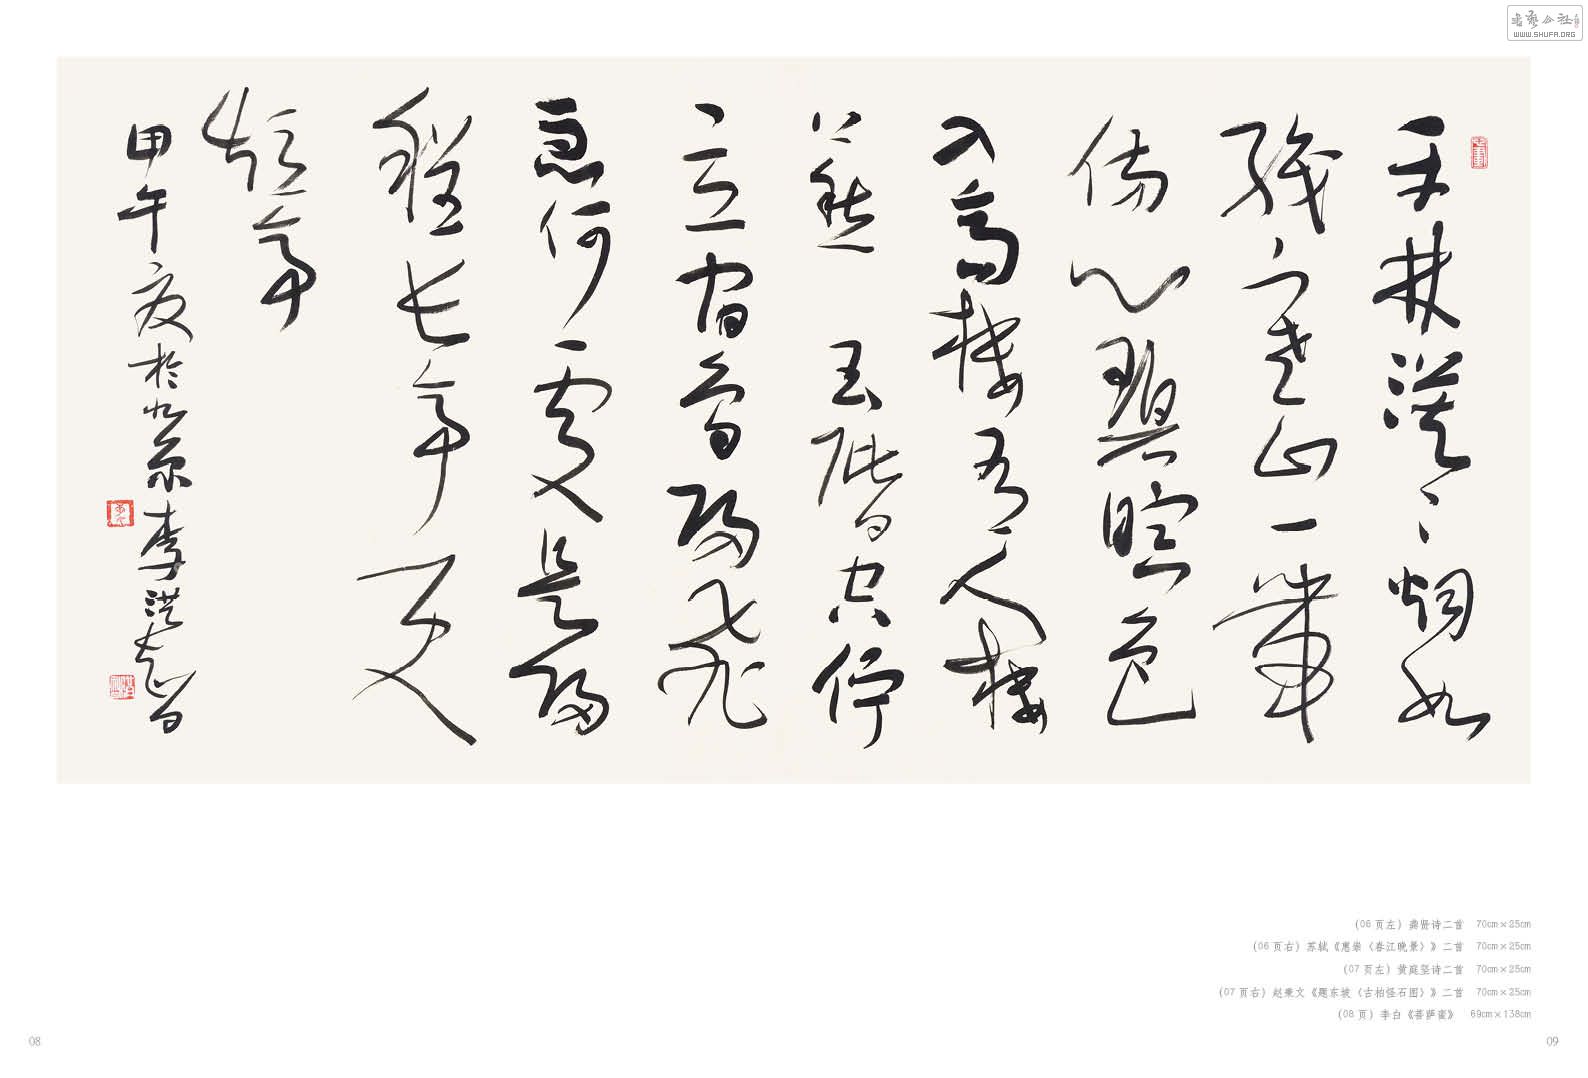 書藝公社
WWW.SHUFA.ORG
平林漠〻烟如
織寒山一帶
傷心碧暝色
入高樓有人樓
上愁玉階空佇
立宿鳥歸飛
急何處是歸
程長亭更
短亭
甲午夏於北京李洪智
(06 页左) 龚贤诗二首 70cm×25cm
(06 页右) 苏轼《惠崇〈春江晚景〉》二首 70cm×25cm
(07 页左) 黄庭坚诗二首 70cm×25cm
(07 页右) 赵秉文《题东坡〈古柏怪石图〉》二首 70cm×25cm
(08 页) 李白《菩萨蛮》 69cm×138cm
08
09